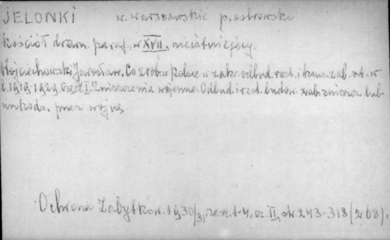 JELONKI w. warszawskie p. ostrowski
Kościół drewn. paraf. w XVII, nieistniejący.
Wojciechowski Jarosław. Co zrobiła Polska w zakr. odbud. rest. i konserw. zab. szt. w
l. 1919-1929. Część I. Zniszczenia wojenne. Odbud. i rest. budow. zab. zniszcz. lub
uszkodz. przez wojnę.
Ochrona Zabytków. 1930/31, zesz. 1-4, cz. II, str. 243-318 (268).